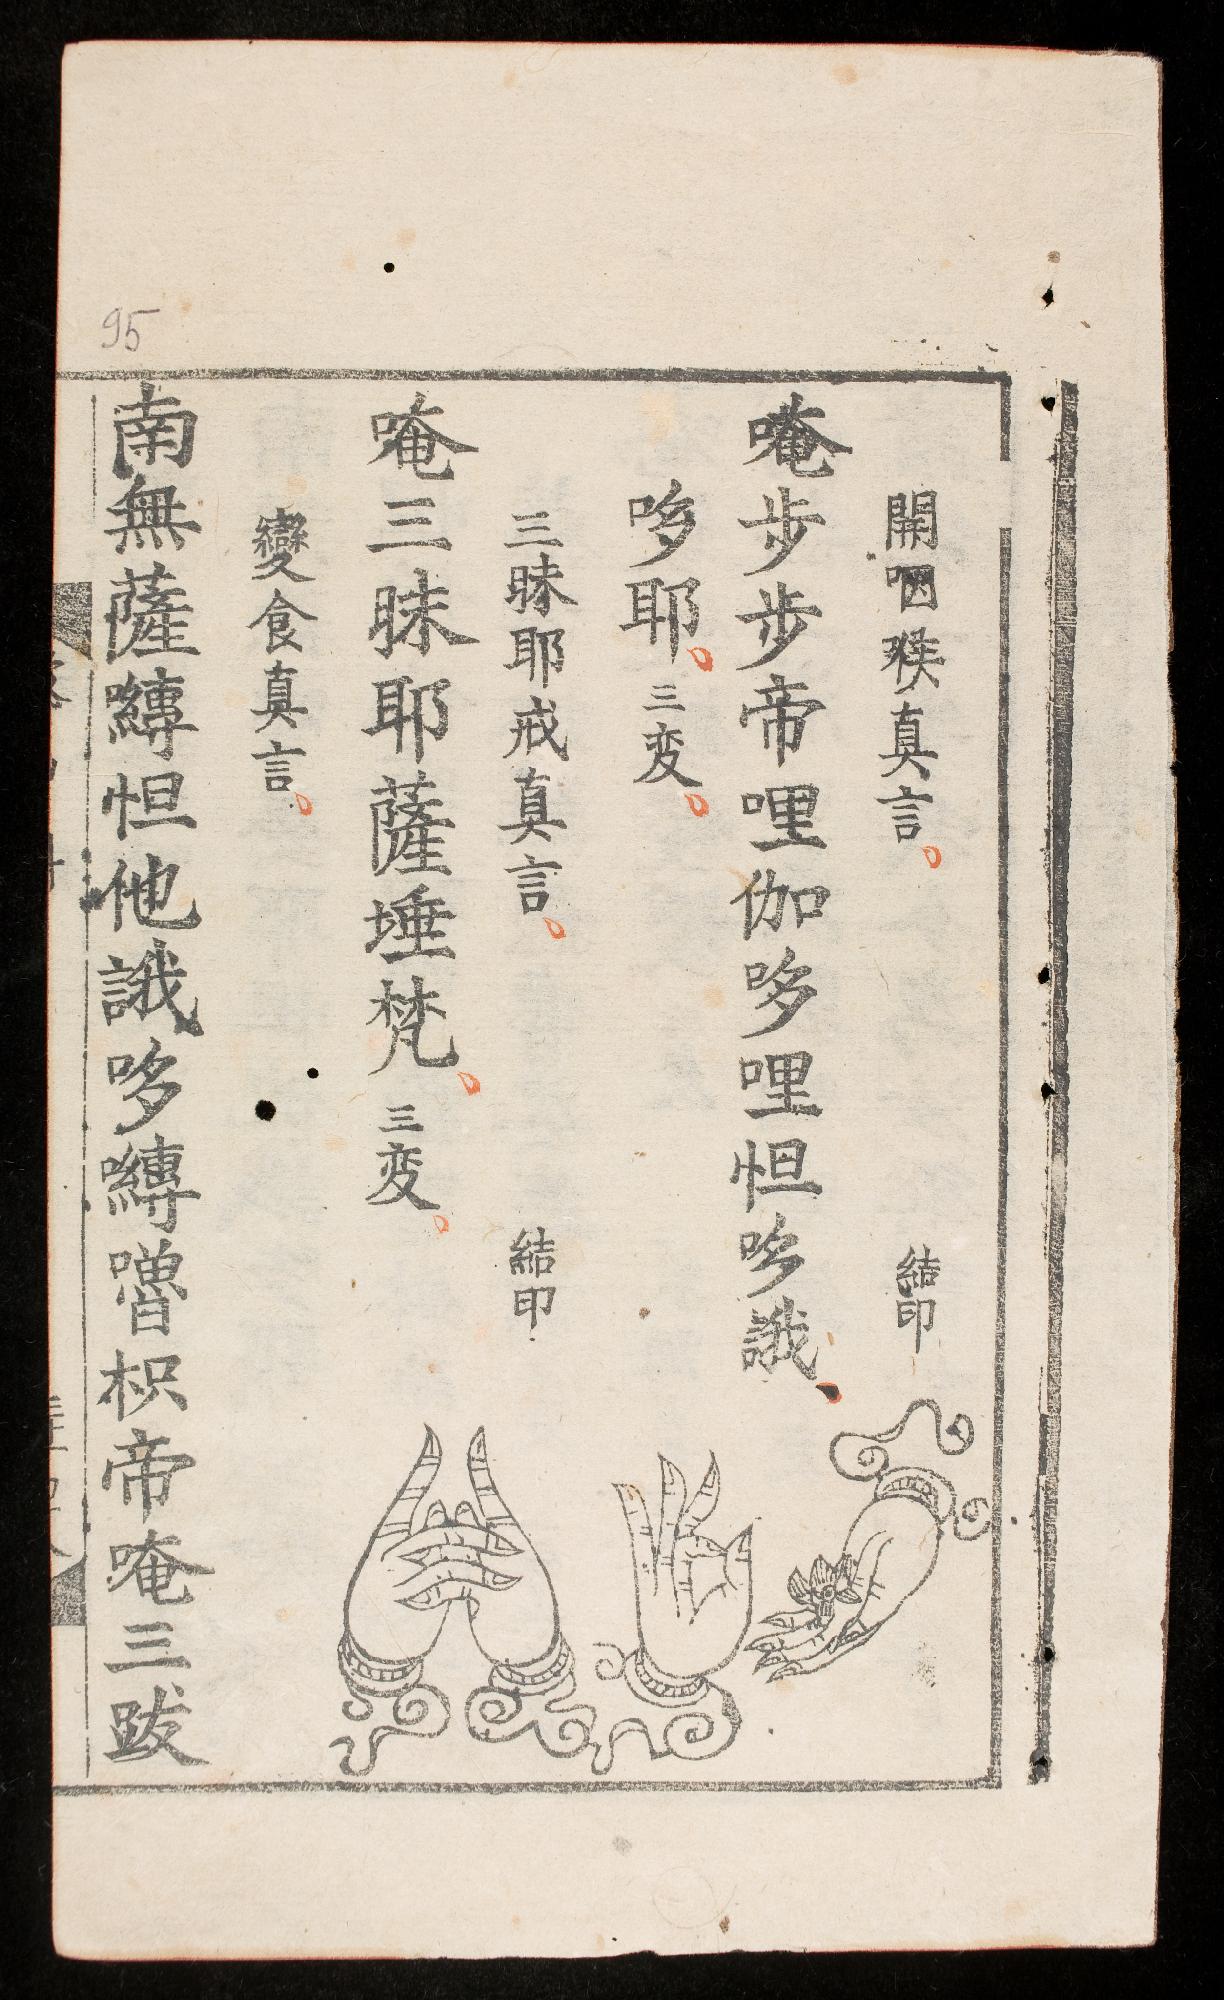 開咽喉真言 結印
唵步步帝哩伽哆哩怛哆誐
哆耶 三变
三昧耶戒真言 結印
唵三昧耶薩埵梵 三变
變食真言
南無薩嚩怛他誐哆嚩嚕枳帝唵三跋
95